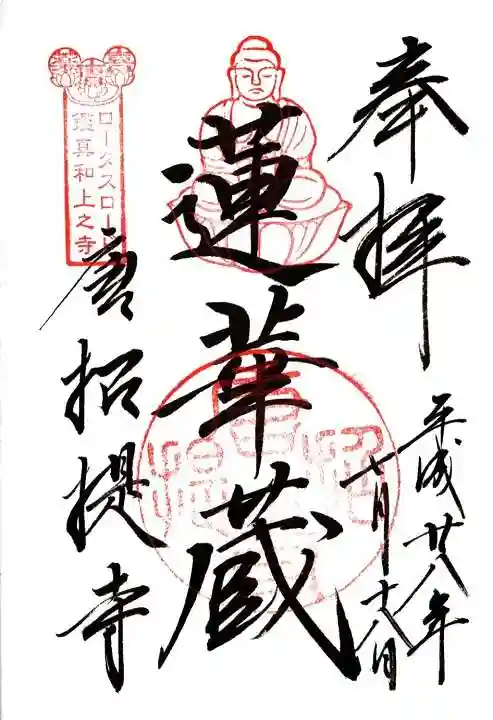 奉拝
平成廿八年
七月十八日
蓮華蔵
ロータスロード
鑑真和上之寺
唐招提寺